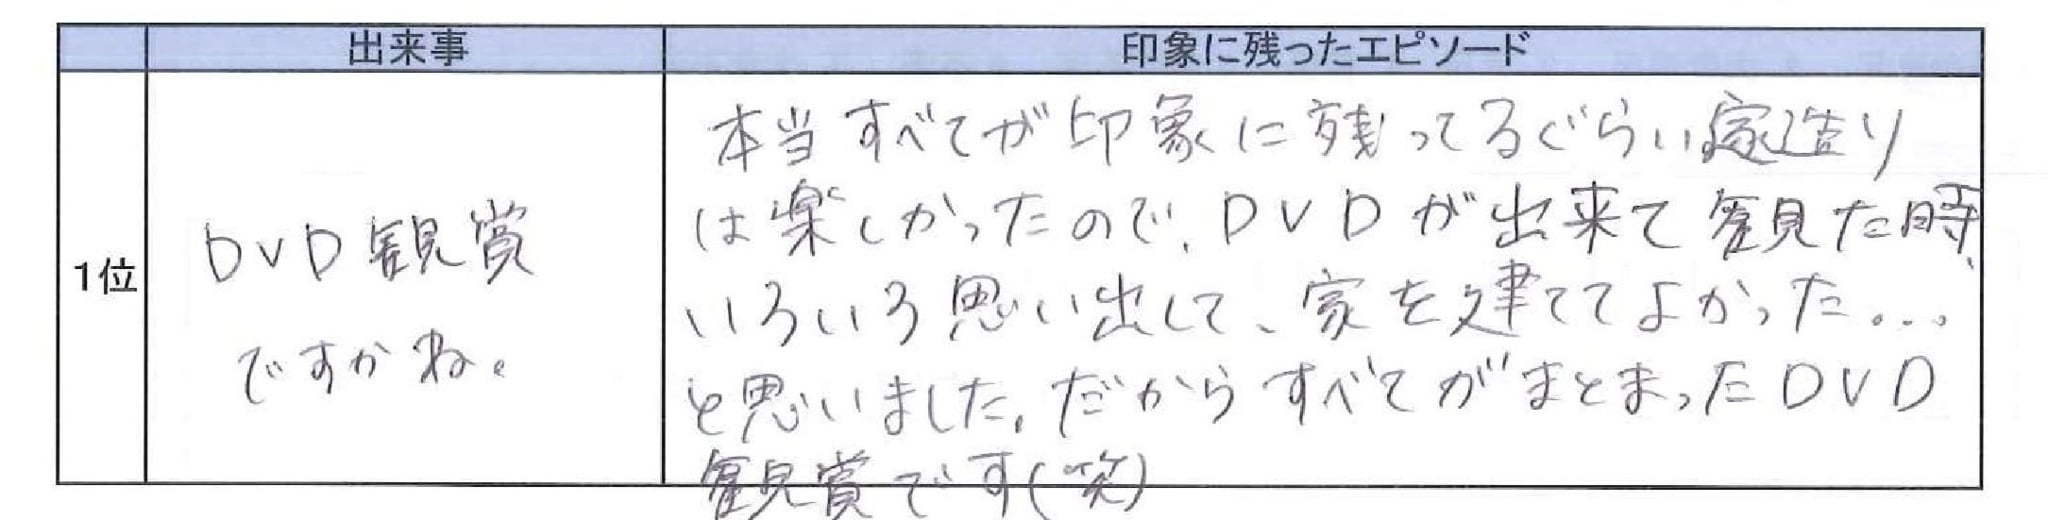 出来事
印象に残ったエピソード
1位
DVD観賞
ですかね。
本当すべてが印象に残ってるぐらい家造り
は楽しかったので、DVDが出来て観た時、
いろいろ思い出して、家を建ててよかった...
と思いました。だからすべてがまとまったDVD
観賞です(笑)